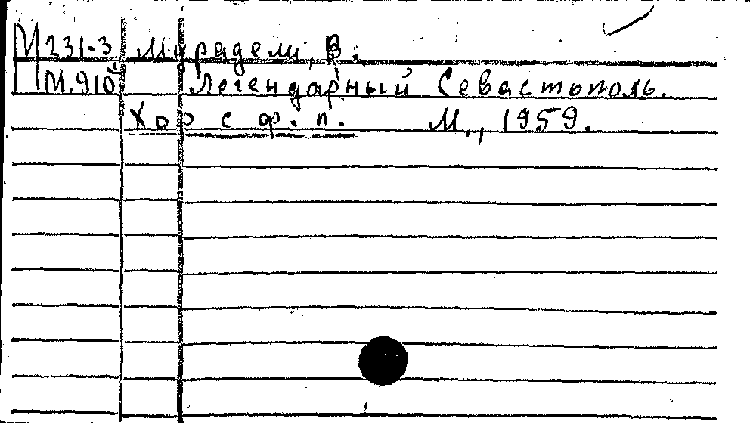 М331-3 Мурадели, В.
М.910 Легендарный Севастополь.
Хор с ф. п. М., 1959.